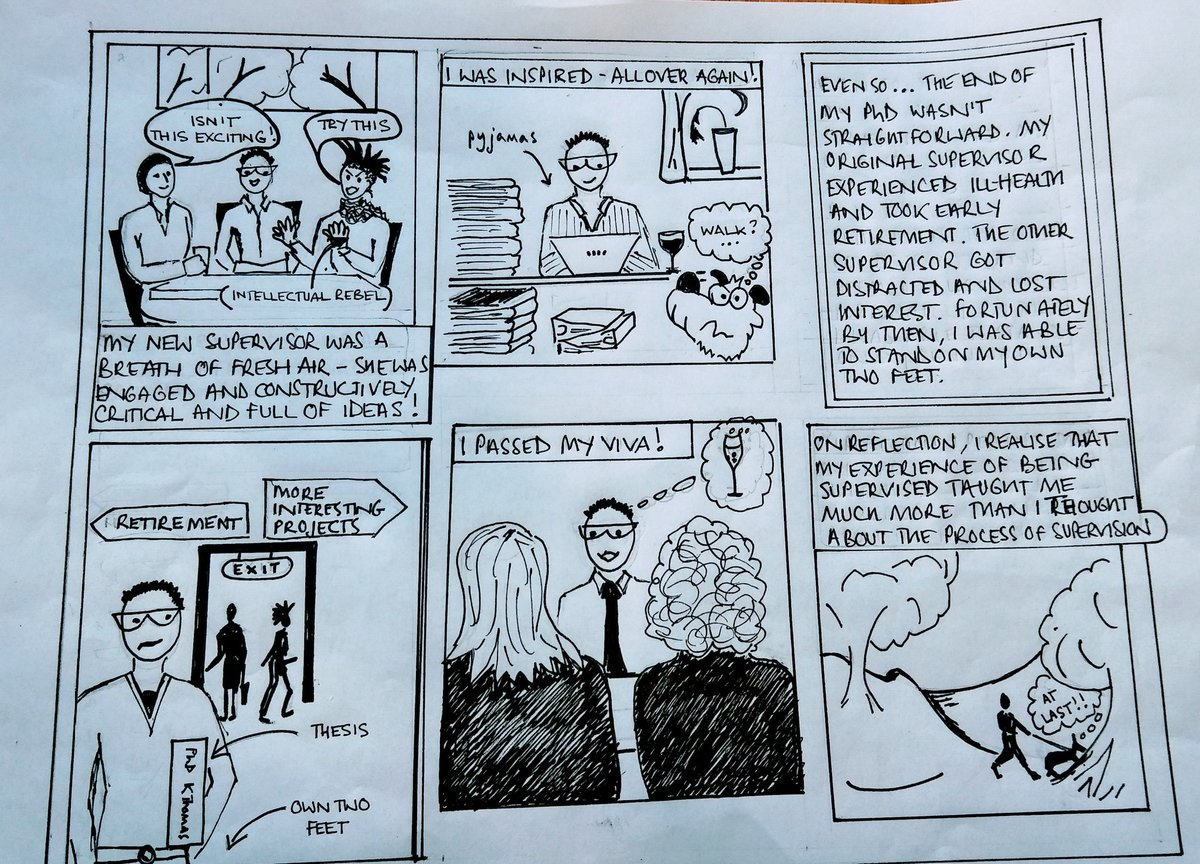 ISN'T
THIS EXCITING!
TRY THIS
INTELLECTUAL REBEL
MY NEW SUPERVISOR WAS A
BREATH OF FRESH AIR - SHE WAS
ENGAGED AND CONSTRUCTIVELY
CRITICAL AND FULL OF IDEAS!
I WAS INSPIRED - ALL OVER AGAIN!
pyjamas
WALK?
...
EVEN SO... THE END OF
MY PhD WASN'T
STRAIGHTFORWARD. MY
ORIGINAL SUPERVISOR
EXPERIENCED ILL-HEALTH
AND TOOK EARLY
RETIREMENT. THE OTHER
SUPERVISOR GOT
DISTRACTED AND LOST
INTEREST. FORTUNATELY
BY THEN, I WAS ABLE
TO STAND ON MY OWN
TWO FEET.
RETIREMENT
MORE
INTERESTING
PROJECTS
EXIT
THESIS
PhD K Thomas
OWN TWO
FEET
I PASSED MY VIVA!
ON REFLECTION, I REALISE THAT
MY EXPERIENCE OF BEING
SUPERVISED TAUGHT ME
MUCH MORE THAN I THOUGHT
ABOUT THE PROCESS OF SUPERVISION
AT
LAST!!